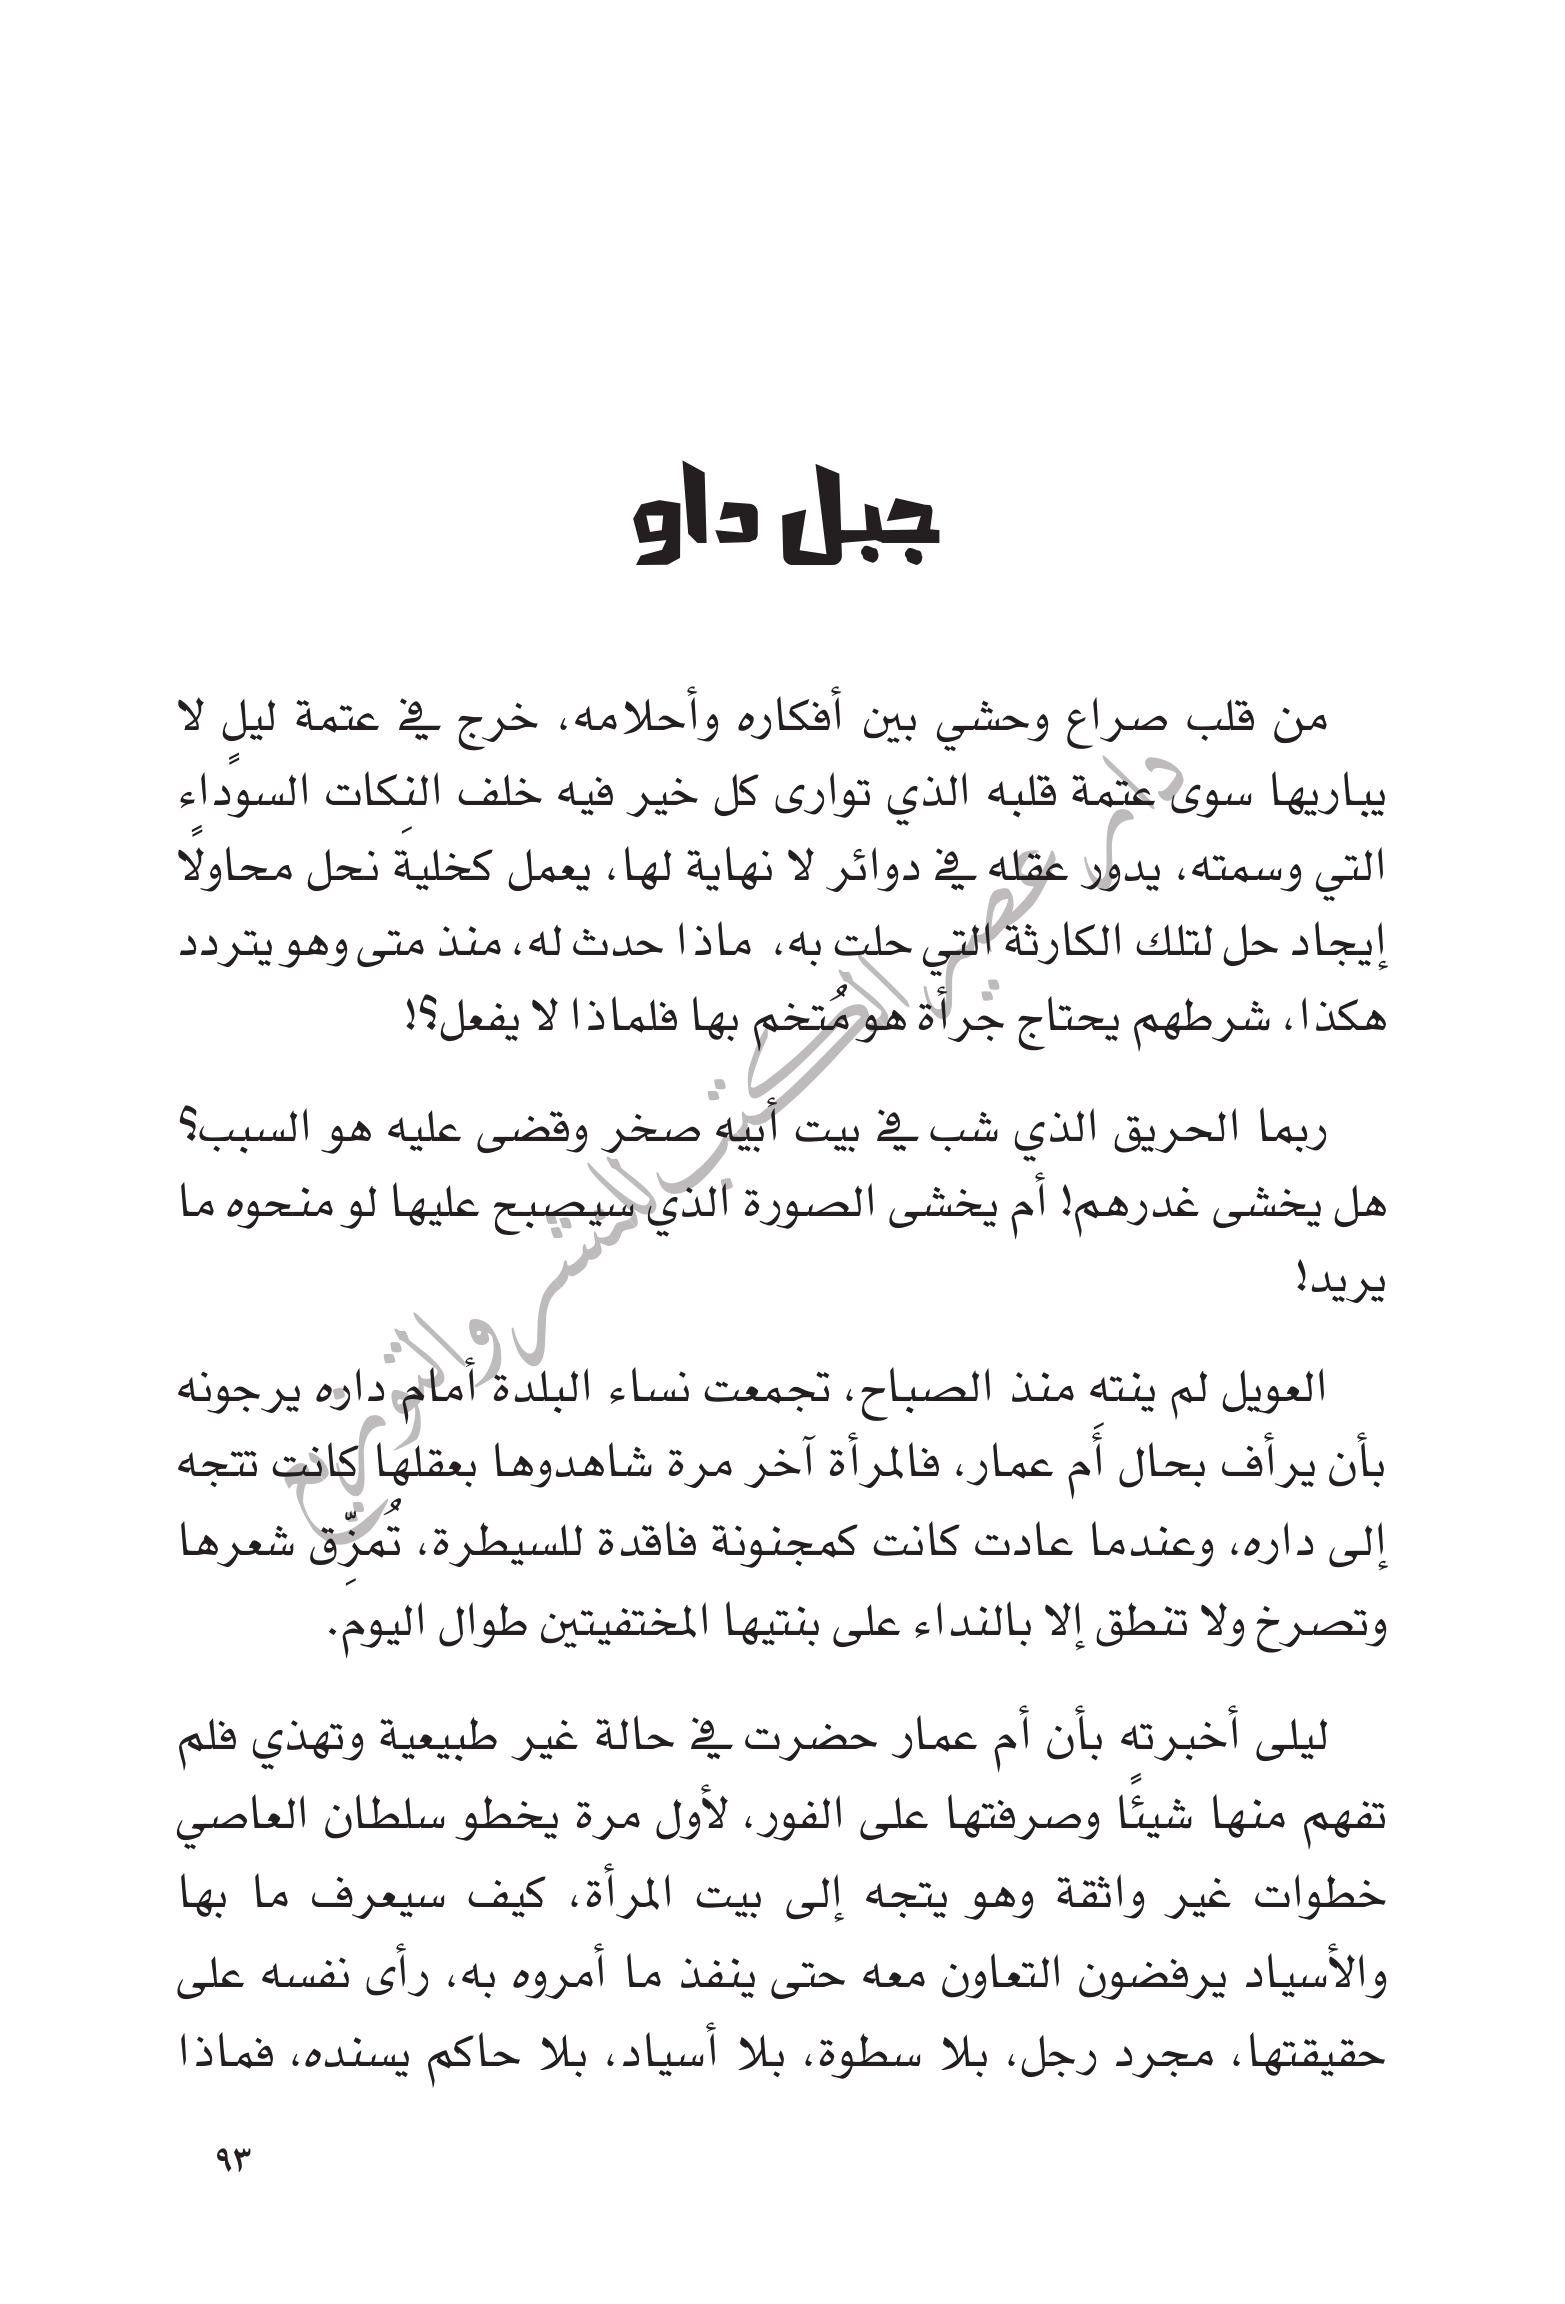 جبل داو
من قلب صراع وحشي بين أفكاره وأحلامه، خرج في عتمة ليلٍ لا
يباريها سوى عتمة قلبه الذي توارى كل خير فيه خلف النِكات السوداء
التي وسمته، يدور عقله في دوائر لا نهاية لها، يعمل كخلية نحل محاولًا
إيجاد حل لتلك الكارثة التي حلت به، ماذا حدث له، منذ متى وهو يتردد
هكذا، شرطهم يحتاج جرأة هو مُتخم بها فلماذا لا يفعل؟!
ربما الحريق الذي شب في بيت أبيه صخر وقضى عليه هو السبب؟
هل يخشى غدرهم! أم يخشى الصورة الذي سيصبح عليها لو منحوه ما
يريد!
العويل لم ينته منذ الصباح، تجمعت نساء البلدة أمام داره يرجونه
بأن يرأف بحال أَم عمار، فالمرأة آخر مرة شاهدوها بعقلها كانت تتجه
إلى داره، وعندما عادت كانت كمجنونة فاقدة للسيطرة، تُمزِّق شعرها
وتصرخ ولا تنطق إلا بالنداء على بنتيها المختفيتين طوال اليوم.
ليلى أخبرته بأن أم عمار حضرت في حالة غير طبيعية وتهذي فلم
تفهم منها شيئًا وصرفتها على الفور، لأول مرة يخطو سلطان العاصي
خطوات غير واثقة وهو يتجه إلى بيت المرأة، كيف سيعرف ما بها
والأسياد يرفضون التعاون معه حتى ينفذ ما أمروه به، رأى نفسه على
حقيقتها، مجرد رجل، بلا سطوة، بلا أسياد، بلا حاكم يسنده، فماذا
٩٣
دار عصير الكتب للنشر والتوزيع